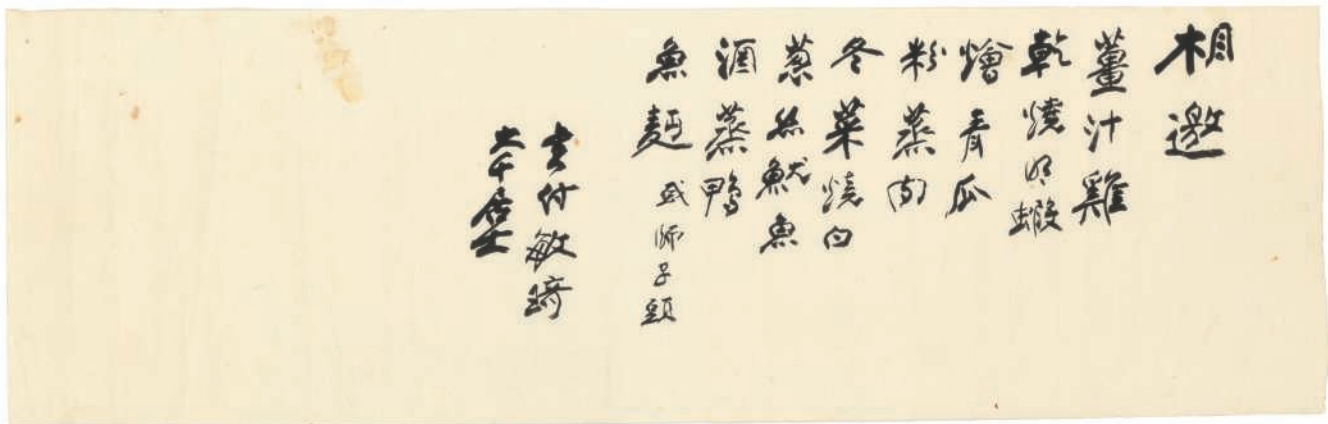 相邀
薑汁雞
乾燒明蝦
燴青瓜
粉蒸肉
冬菜燒白
蔥絲魷魚
酒蒸鴨
魚麵 或獅子頭
書付敏琦
大千居士